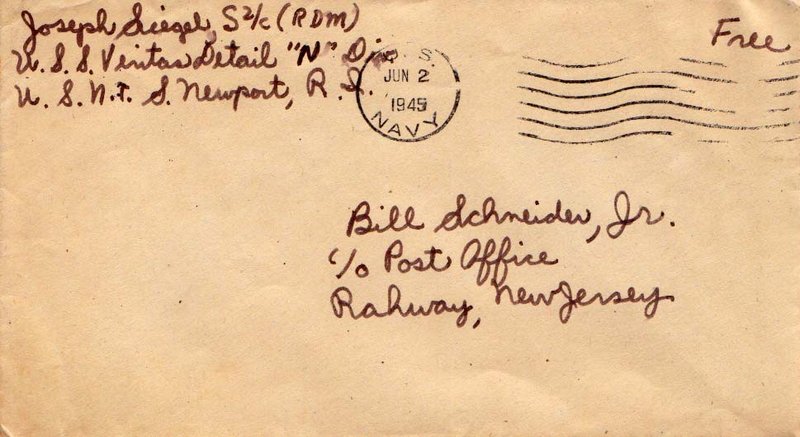 Joseph Siegel, S 2/c (RDM)
U.S.S. Veritas Detail "N" Div
U.S.N.T.S. Newport, R.I.
U. S.
JUN 2
1945
NAVY
Free
Bill Schneider, Jr.
c/o Post Office
Rahway, New Jersey